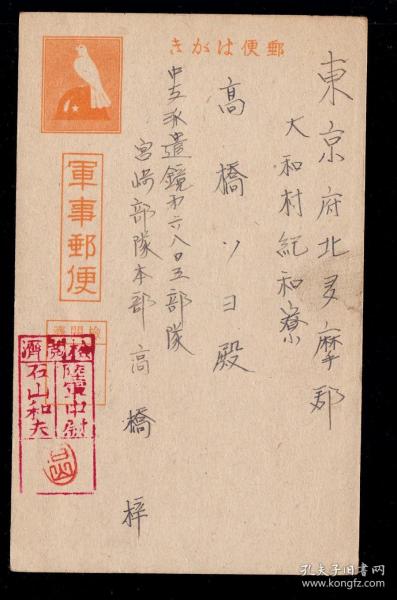 郵便はがき
東京府北多摩郡
大和村紀和寮
高橋ソヨ殿
中支派遣鏡第六八〇五部隊
宮崎部隊本部 高橋 梓
軍事郵便
検閲済
検閲濟
陸軍中尉
石山和夫
孔夫子旧书网
www.kongfz.com